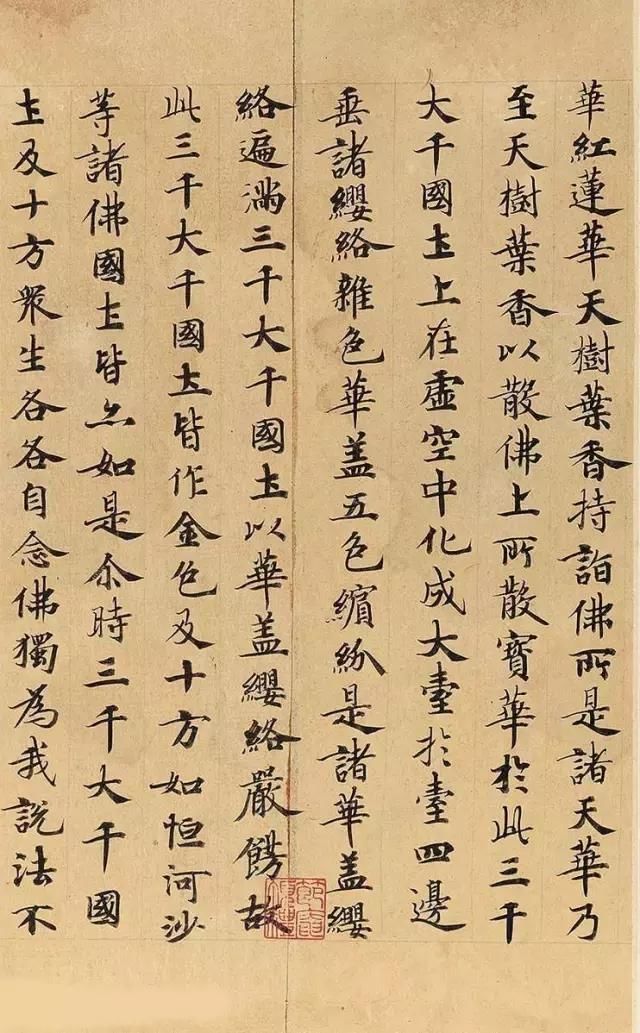 華紅蓮華天樹葉香持詣佛所是諸天華乃
至天樹葉香以散佛上所散寶華於此三千
大千國圡上在虛空中化成大臺於臺四邊
垂諸纓絡雜色華盖五色繽紛是諸華盖纓
絡遍滿三千大千國圡以華盖纓絡嚴餝故
此三千大千國圡皆作金色及十方如恒河沙
等諸佛國圡皆尒如是尒時三千大千國
圡及十方眾生各各自念佛獨為我說法不